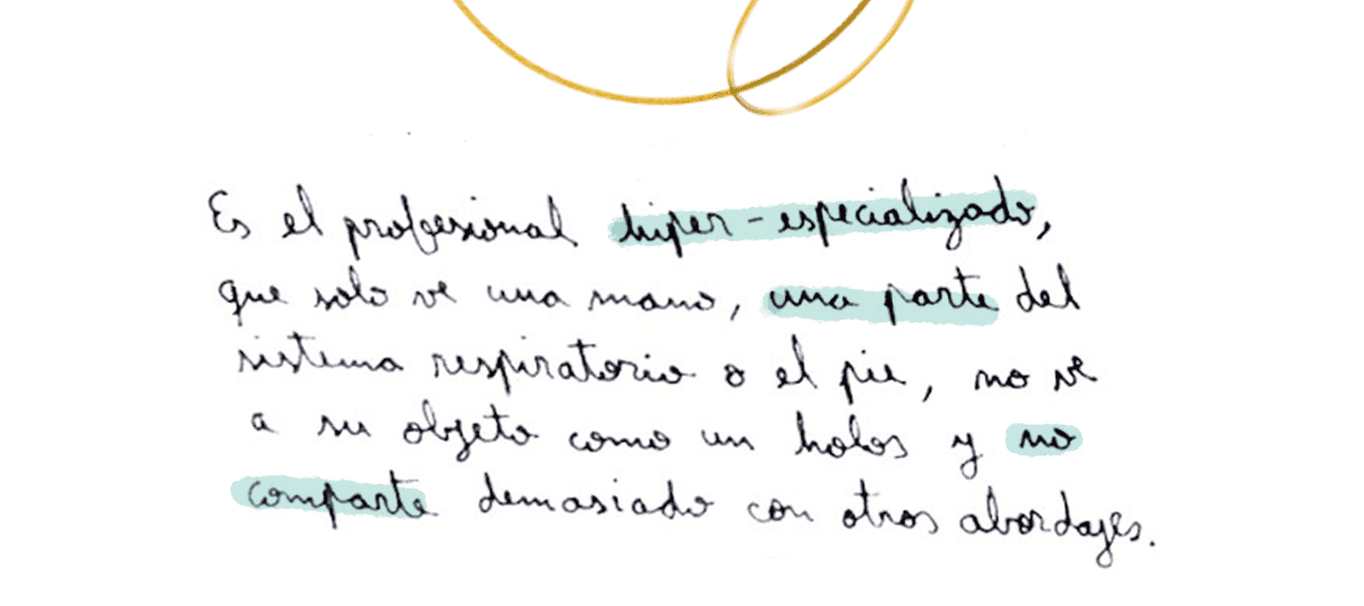 Es el profesional hiper-especializado,
que solo ve una mano, una parte del
sistema respiratorio o el pie, no ve
a su objeto como un holos y no
comparte demasiado con otros abordajes.